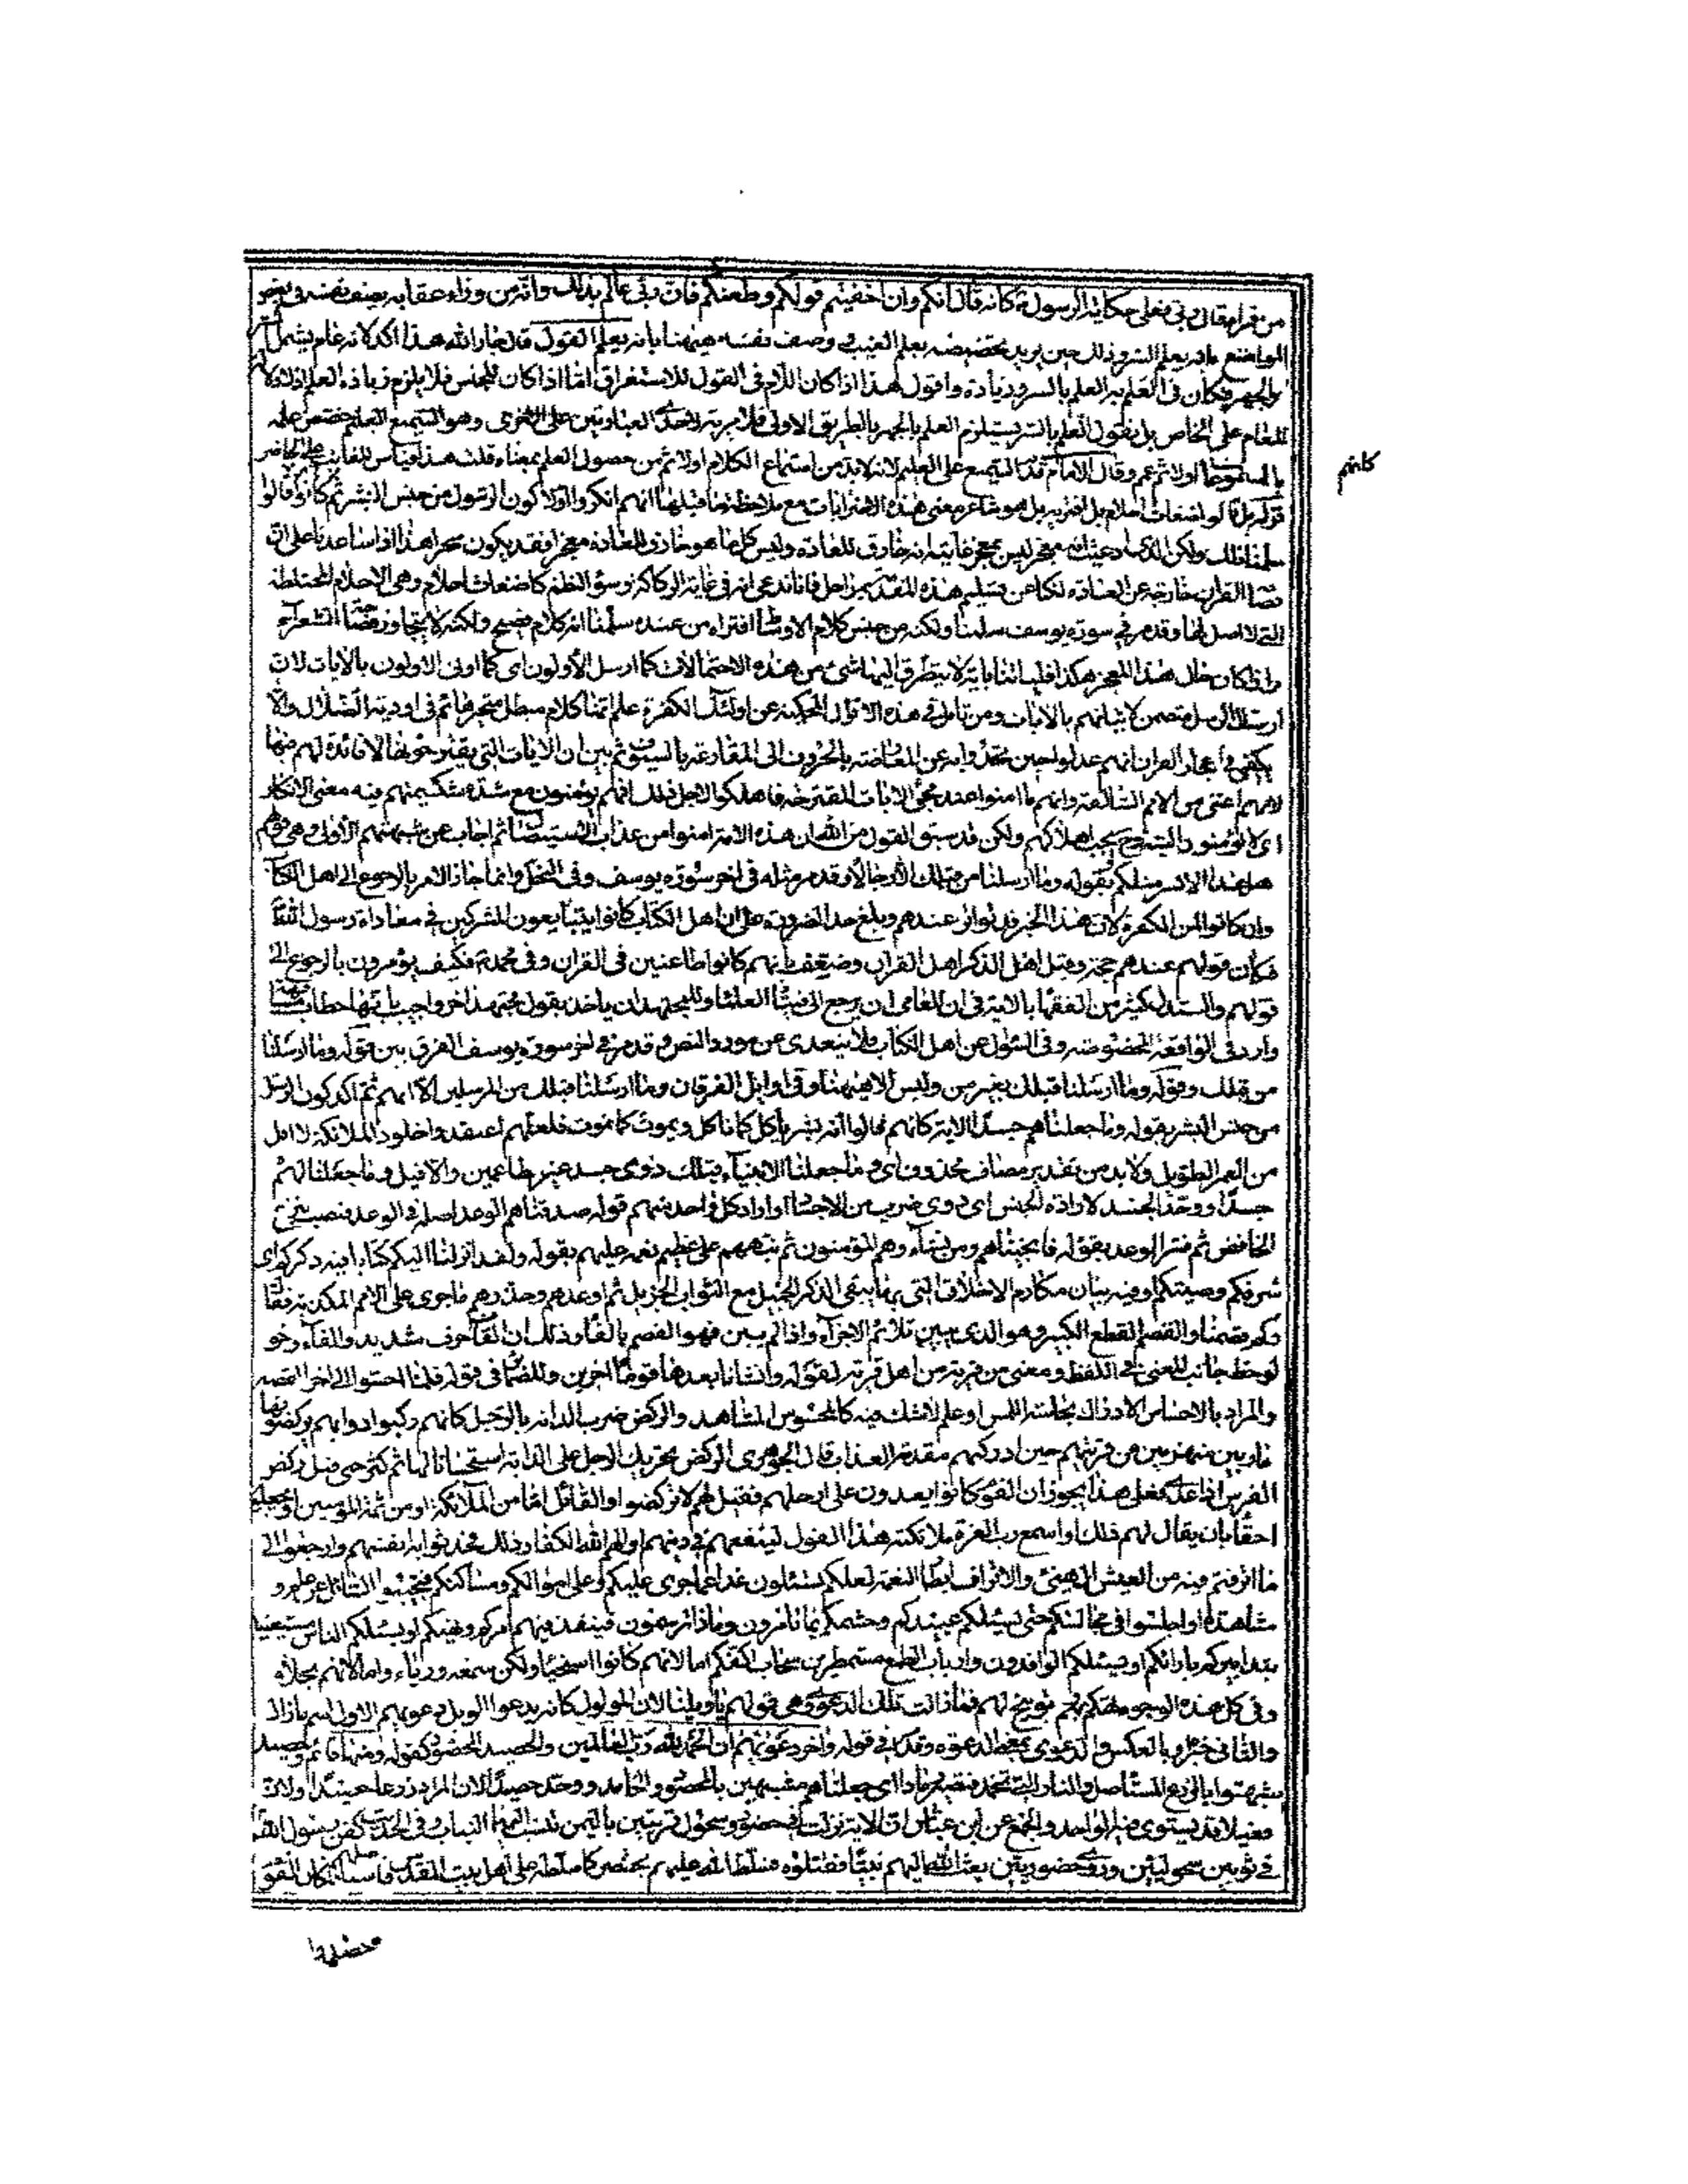 من قرا قال ربي فعلى حكاية الرسول ص كانه قال انكم وان اخفيتم قولكم وطعنكم فان ربي عالم بذلك وانه من وراء عقابه يصف نفسه في بعض
المواضع بانه يعلم السر وذلك حين يريد تخصيصه بعلم الغيب وصف نفسه ههنا بانه يعلم القول قال جار الله هذا اكد لانه عام يشمل السر
والجهر فكان في العلم به العلم بالسر وزيادة واقول هذا اذا كان اللام في القول للاستغراق اما اذا كان للجنس فلا يلزم زيادة العلم اذ لا دلالة
للعام على الخاص بل نقول العلم بالسر يستلزم العلم بالجهر بالطريق الاولى فلا مزية لاحدى العبارتين على الاخرى وهو السميع العليم خصص علمه
بالمسموعا اولا ثم عمم وقال الامام قدم السميع على العليم لانه لا بد من استماع الكلام اولا ثم من حصول العلم بمعناه قلت هذا قياس للغائب على الحاضر
قوله بل قالوا اضغاث احلام بل افتريه بل هو شاعر معنى هذه الاضرابات مع ملاحظة ما قبلها انهم انكروا اولا كون الرسول من جنس البشر ثم كانهم قالوا
سلمنا ذلك ولكن الذي ادعيت انه معجز ليس بمعجز غايته انه خارق للعادة وليس كل ما هو خارق للعادة معجزا فقد يكون سحرا هذا اذا ساعدنا على ان
فصاحة القران خارجة عن العادة لكنا عن تسليم هذه المقدمة بمراحل فانا ندعي انه في غاية الركاكة وسوء النظم كاضغاث احلام وهي الاحلام المختلطة
التي لا اصل لها وقد مر في سورة يوسف سلمنا ولكنه من جنس كلام الاوساط افتراه من عنده سلمنا انه كلام فصيح ولكنه لا يتجاوز فصاحة الشعراء
واذا كان حال هذا المعجز هكذا فلياتنا باية لا يتطرق اليها شئ من هذه الاحتمالات كما ارسل الأولون اى كما اوتى الاولون بالايات لان
ارسال الرسل متضمن لاتيانهم بالايات ومن تامل في هذه الاقوال المحكية عن اولئك الكفرة علم انها كلام مبطل متحير هائم في اودية الضلال والا
يكفي في اعجاز القران انهم عدلوا حين تحدوا به عن المعارضة بالحروف الى المقارعة بالسيوف ثم بين ان الايات التي يقترحونها لا فائدة لهم فيها
لانهم اعتى من الامم السالفة وانهم ما امنوا عند مجئ الايات المقترحة فاهلكوا لاجل ذلك افهم يؤمنون مع شدة شكيمتهم فيه معنى الانكار
اى لا يؤمنون البتة وح يجب اهلاكهم ولكن قد سبق القول من الله ان هذه الامة امنوا من عذاب الاستيصال ثم اجاب عن شبهتهم الأولى وهي قولهم
هل هذا الا بشر مثلكم بقوله وما ارسلنا من قبلك الا رجالا وقد مر مثله في اخر سورة يوسف وفي النحل وانما جاز الامر بالرجوع الى اهل الكتاب
وان كانوا من الكفرة لان هذا الخبر قد تواتر عندهم وبلغ حد الضرورة على ان اهل الكتاب كانوا يتبايعون المشركين في معاداة رسول الله ص
فكان قولهم عندهم حجة وقيل اهل الذكر اهل القران وضعف بانهم كانوا طاعنين في القران وفي محمد ص فكيف يؤمرون بالرجوع الى
قولهم واستدل كثير من الفقها بالاية في ان للعامى ان يرجع الى فتيا العلماء وللمجتهد ان ياخذ بقول مجتهد اخر واجيب بانها خطاب مشافهة
وارد في الواقعة المخصوصة وفي السؤال عن اهل الكتاب فلا يتعدى عن مورد النص وقد مر في اخر سورة يوسف الفرق بين قوله وما ارسلنا
من قبلك وقوله وما ارسلنا قبلك بغير من وليس الا ههنا وفي اوايل الفرقان وما ارسلنا قبلك من المرسلين الا انهم ثم اكد كون الرسل
من جنس البشر بقوله وما جعلناهم جسدا الاية كانهم قالوا انه بشر ياكل كما ناكل ويموت كما نموت فلعلهم اعتقدوا خلود الملائكة لا اقل
من العمر الطويل ولا بد من تقدير مضاف محذوف اى وما جعلنا الانبياء قبلك ذوى جسد غير طاعمين والا قيل وما جعلنا لهم
جسدا ووحد الجسد لارادة الجنس اى ذوى ضرب من الاجساد او اراد كل واحد منهم قوله صدقناهم الوعد اصله في الوعد فنصب بنزع
الخافض ثم فسر الوعد بقوله فانجيناهم ومن نشاء وهم المؤمنون ثم نبههم على عظيم نعمه عليهم بقوله ولقد انزلنا اليكم كتابا فيه ذكركم اى
شرفكم وصيتكم او فيه بيان مكارم الاخلاق التي بها يبقى الذكر الجميل مع الثواب الجزيل ثم اوعدهم وحذرهم ما جرى على الامم المكذبة فقال
وكم قصمنا والقصم القطع الكبير وهو الذي يبين تلائم الاجزاء واذا لم يبين فهو الفصم بالفاء وذلك ان القاف حرف شديد والفاء رخو
لوحظ جانب المعنى في اللفظ ومعنى من قرية من اهل قرية لقوله وانشانا بعدها قوما اخرين وللضمائر في قوله فلما احسوا الى اخر القصة
والمراد بالاحساس الادراك بحاسة اللمس او علم لا شك فيه كالمحسوس المشاهد والركض ضرب الدابة بالرجل كانهم ركبوا دوابهم يركضونها
هاربين منهزمين من قريتهم حين ادركهم مقدمة العذاب قال الجوهرى الركض تحريك الرجل على الدابة استحثاثا لها ثم كثر حتى قيل ركض
الفرس اذا عدا فعلى هذا يجوز ان القوم كانوا يعدون على ارجلهم فقيل لهم لا تركضوا والقائل اما من الملائكة او من ثمة المؤمنين او يجعلهم
احقاء بان يقال لهم ذلك او اسمع رب العزة ملائكته هذا القول لينفعهم في دينهم او الهم الله الكفار ذلك فحدثوا به انفسهم وارجعوا الى
ما اترفتم فيه من العيش الهنئ والاتراف ابطار النعمة لعلكم تسئلون غدا عما جرى عليكم وعلى اموالكم ومساكنكم فتجيبوا السائل عن علم و
مشاهدة او اجلسوا في مجالسكم حتى يسئلكم عبيدكم وحشمكم بما تامرون وماذا ترسمون فينفذ فيهم امركم ونهيكم او يسئلكم الناس مستعينين
بتدابيركم بارائكم او يسئلكم الوافدون وارباب الطمع مستمطرين سحاب اكفكم اما لانهم كانوا اسخياء ولكن سمعة ورياء واما لانهم بخلاء
وفي كل هذه الوجوه تهكم بهم وتوبيخ لهم فما زالت تلك الدعوى وهي قولهم يا ويلنا لان المولول كانه يدعو الويل دعويهم الاول اسم ما زال
والثاني خبر او بالعكس والدعوى بمعنى الدعوة وقد مر في قوله واخر دعويهم ان الحمد لله رب العالمين والحصيد المحصود كقوله ومنها قائم وحصيد
شبهوا بالزرع المستاصل والنار التي تخمد فتصير رمادا اى جعلناهم مشبهين بالمحصود والخامد ووحد حصيدا لان المراد زرعا حصيدا ولان
فعيلا قد يستوى فيه الواحد والجمع عن ابن عباس ان الاية نزلت في حضور وسحول قريتين باليمن تنسب اليهما الثياب وفي الحديث كفن رسول الله ص
في ثوبين سحوليين وروى حضوريين بعث الله اليهم نبيا فقتلوه فسلط الله عليهم بختنصر كما سلطه على اهل بيت المقدس فاستاصلهم